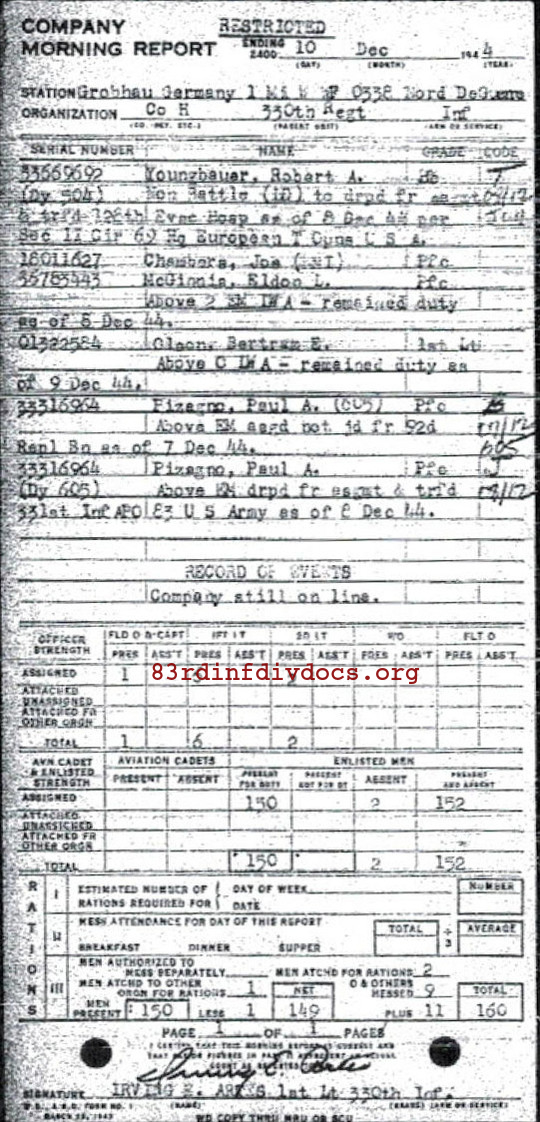 COMPANY RESTRICTED
MORNING REPORT ENDING 2400 10 Dec 1944
(DAY) (MONTH) (YEAR)
STATION Grobhau Germany 1 Mi W WF 0338 Nord DeGuere
ORGANIZATION Co H 330th Regt Inf
(CO. DET. ETC.) (PARENT UNIT) (ARM OR SERVICE)
SERIAL NUMBER NAME GRADE CODE
33669692 Youngbauer, Robert A.
(Dy 504) Non Battle (ID) to drpd fr asgmt
& trfd 128th Evac Hosp as of 8 Dec 44 per
Sec II Cir 69 Hq European T Opns U S A.
18011627 Chambers, Joe (NMI) Pfc
35783443 McGinnis, Eldon L. Pfc
Above 2 EM LWA - remained duty
as of 8 Dec 44.
01322584 Olson, Bertram E. 1st Lt
Above O LWA - remained duty as
of 9 Dec 44.
33316964 Pizagno, Paul A. (605) Pfc
Above EM asgd not jd fr 92d
Repl Bn as of 7 Dec 44. 605
33316964 Pizagno, Paul A. Pfc
(Dy 605) Above EM drpd fr asgmt & trf'd
331st Inf APO 83 U S Army as of 8 Dec 44.
RECORD OF EVENTS
Company still on line.
OFFICER STRENGTH FLD O & CAPT 1ST LT 2D LT WO FLT O
PRES ABS'T PRES ABS'T PRES ABS'T PRES ABS'T PRES ABS'T
ASSIGNED 1
83rdinfdivdocs.org
ATTACHED UNASSIGNED
ATTACHED FR OTHER ORGN
TOTAL 1 6 2
AVN CADET & ENLISTED STRENGTH AVIATION CADETS ENLISTED MEN
PRESENT ABSENT PRESENT FOR DUTY PRESENT NOT FOR DY ABSENT PRESENT AND ABSENT
ASSIGNED 150 2 152
ATTACHED UNASSIGNED
ATTACHED FR OTHER ORGN
TOTAL 150 2 152
RATIONS
I ESTIMATED NUMBER OF RATIONS REQUIRED FOR DAY OF WEEK DATE NUMBER
II MESS ATTENDANCE FOR DAY OF THIS REPORT TOTAL ÷ 3 AVERAGE
BREAKFAST DINNER SUPPER
III MEN AUTHORIZED TO MESS SEPARATELY MEN ATCHD FOR RATIONS 2
MEN ATCHD TO OTHER ORGN FOR RATIONS 1 NET O & OTHERS MESSED 9 TOTAL
MEN PRESENT 150 LESS 1 149 PLUS 11 160
PAGE 1 OF 1 PAGES
I CERTIFY THAT THIS MORNING REPORT IS CORRECT AND
SIGNATURE IRVING E. ARKS 1st Lt 330th Inf.
W.D., A.G.O. FORM NO. 1 (NAME) (GRADE) (ARM OR SERVICE)
MARCH 23, 1943
WD COPY THRU MRU OR SCU